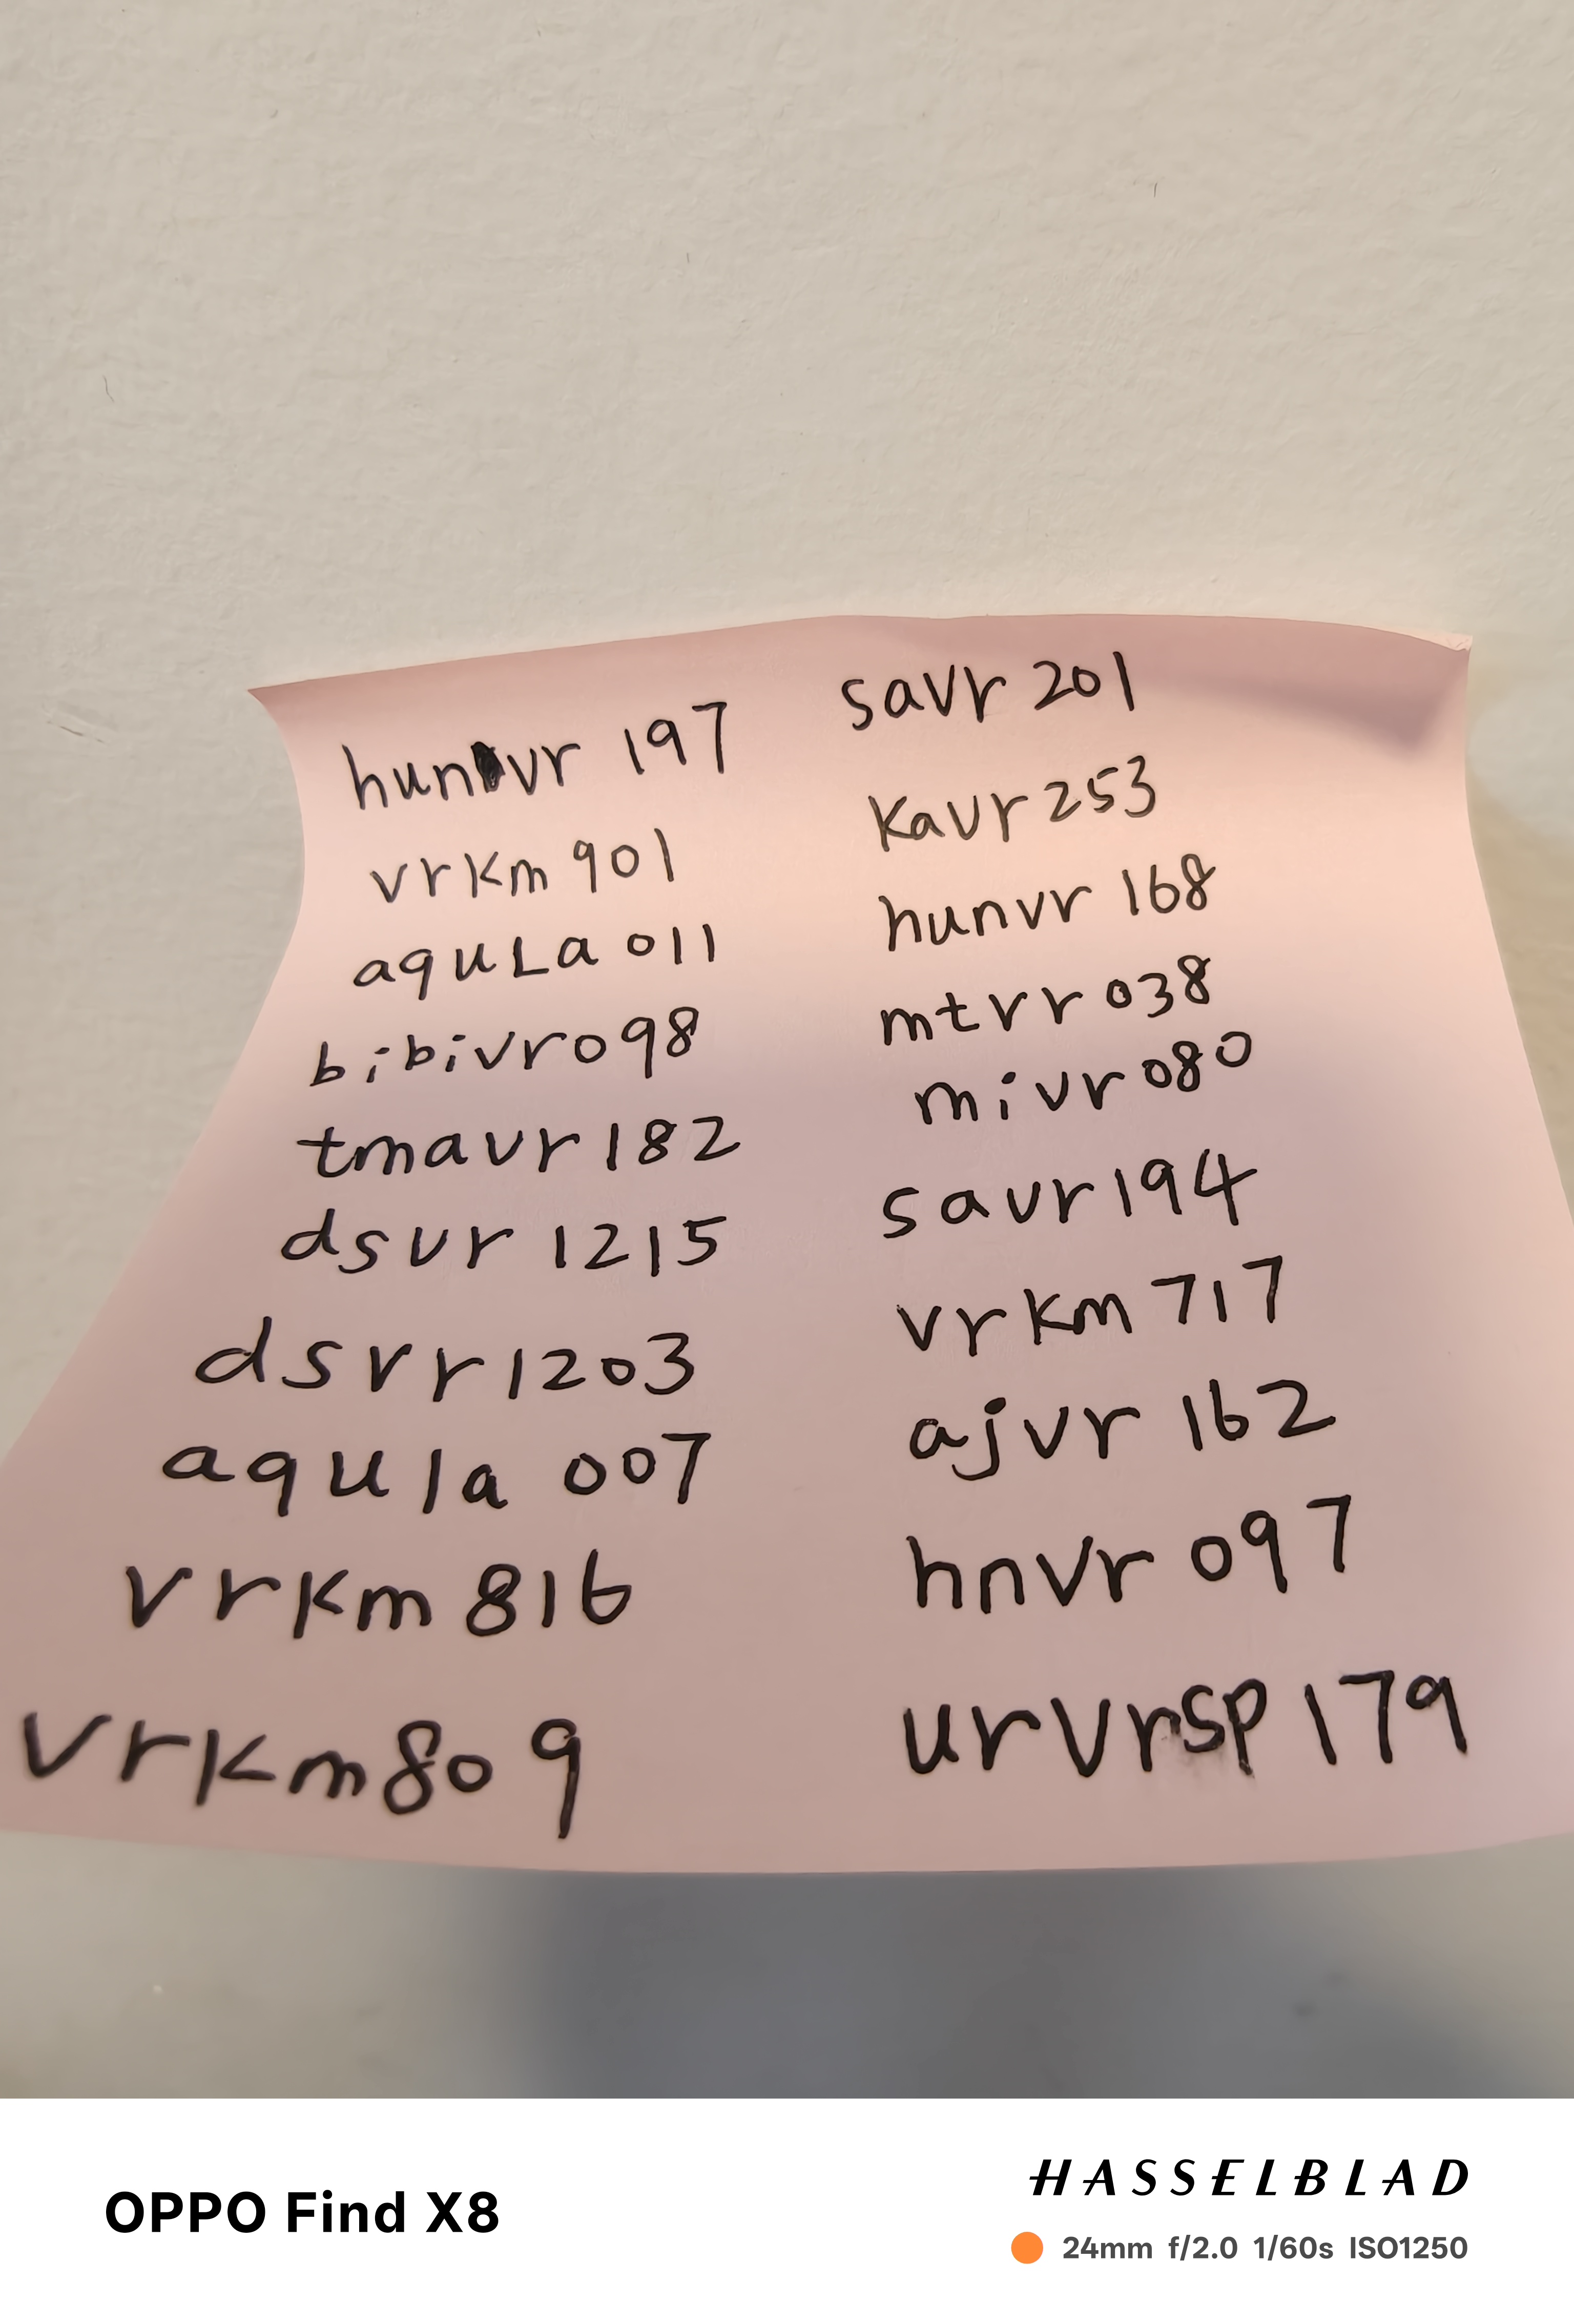 hunvr 197
vrkm 901
aquLa 011
bibivr098
tmavr 182
dsvr 1215
dsvr1203
aqula 007
vrkm 816
vrkm809
savr 201
Kavr 253
hunvr 168
mtvr 038
mivr 080
savr194
vrkm 717
ajvr 162
hnvr 097
urvrsp179
OPPO Find X8
HASSELBLAD
24mm f/2.0 1/60s ISO1250